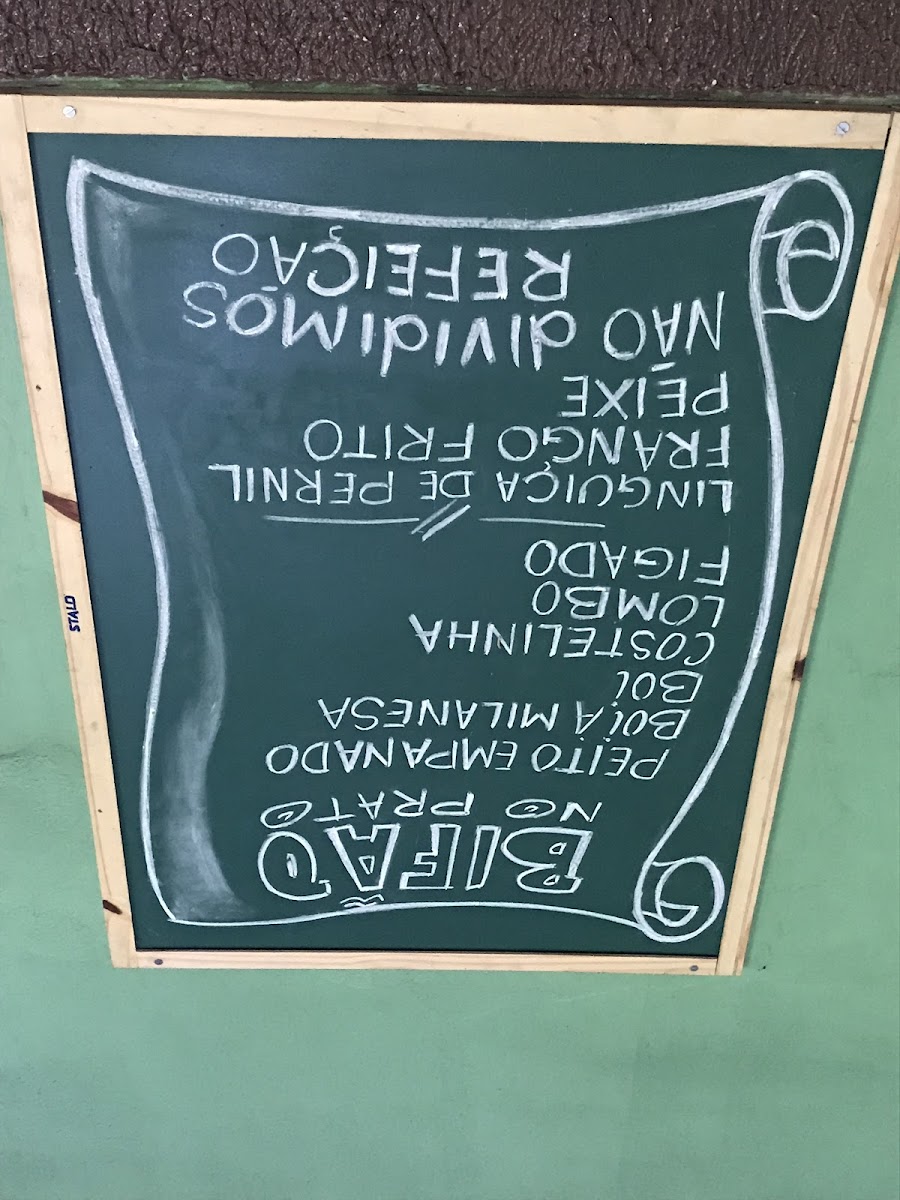 BIFÃO
NO PRATO
PEITO EMPANADO
BOI A MILANESA
BOI
COSTELINHA
LOMBO
FIGADO
LINGUIÇA DE PERNIL
FRANGO FRITO
PEIXE
NÃO dividimos
REFEIÇÃO
STALO